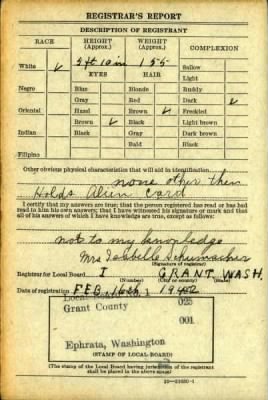 REGISTRAR'S REPORT
DESCRIPTION OF REGISTRANT
RACE HEIGHT (Approx.) WEIGHT (Approx.) COMPLEXION
White ✓ 5 ft 10 in 155 Sallow
EYES HAIR Light
Negro Blue Blonde Ruddy
Gray Red Dark ✓
Oriental Hazel Brown ✓ Freckled
Brown ✓ Black Light brown
Indian Black Gray Dark brown
Bald Black
Filipino
Other obvious physical characteristics that will aid in identification
none other then
Holds Alien Card
I certify that my answers are true; that the person registered has read or has had
read to him his own answers; that I have witnessed his signature or mark and that
all of his answers of which I have knowledge are true, except as follows:
not to my knowledge
Mrs Isabelle Schumacher
(Signature of registrar)
Registrar for Local Board 1 GRANT WASH.
(Number) (City or county) (State)
Date of registration FEB. 16th 1942
Local Board No. 1 025
Grant County
001
Ephrata, Washington
(STAMP OF LOCAL BOARD)
(The stamp of the Local Board having jurisdiction of the registrant
shall be placed in the above space)